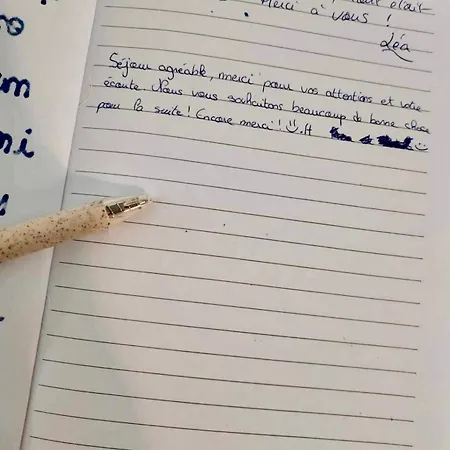 était
Merci à vous !
Léa
Séjour agréable, merci pour vos attentions et votre
écoute. Nous vous souhaitons beaucoup de bonne chose
pour la suite ! Encore merci !
ro
m
ni